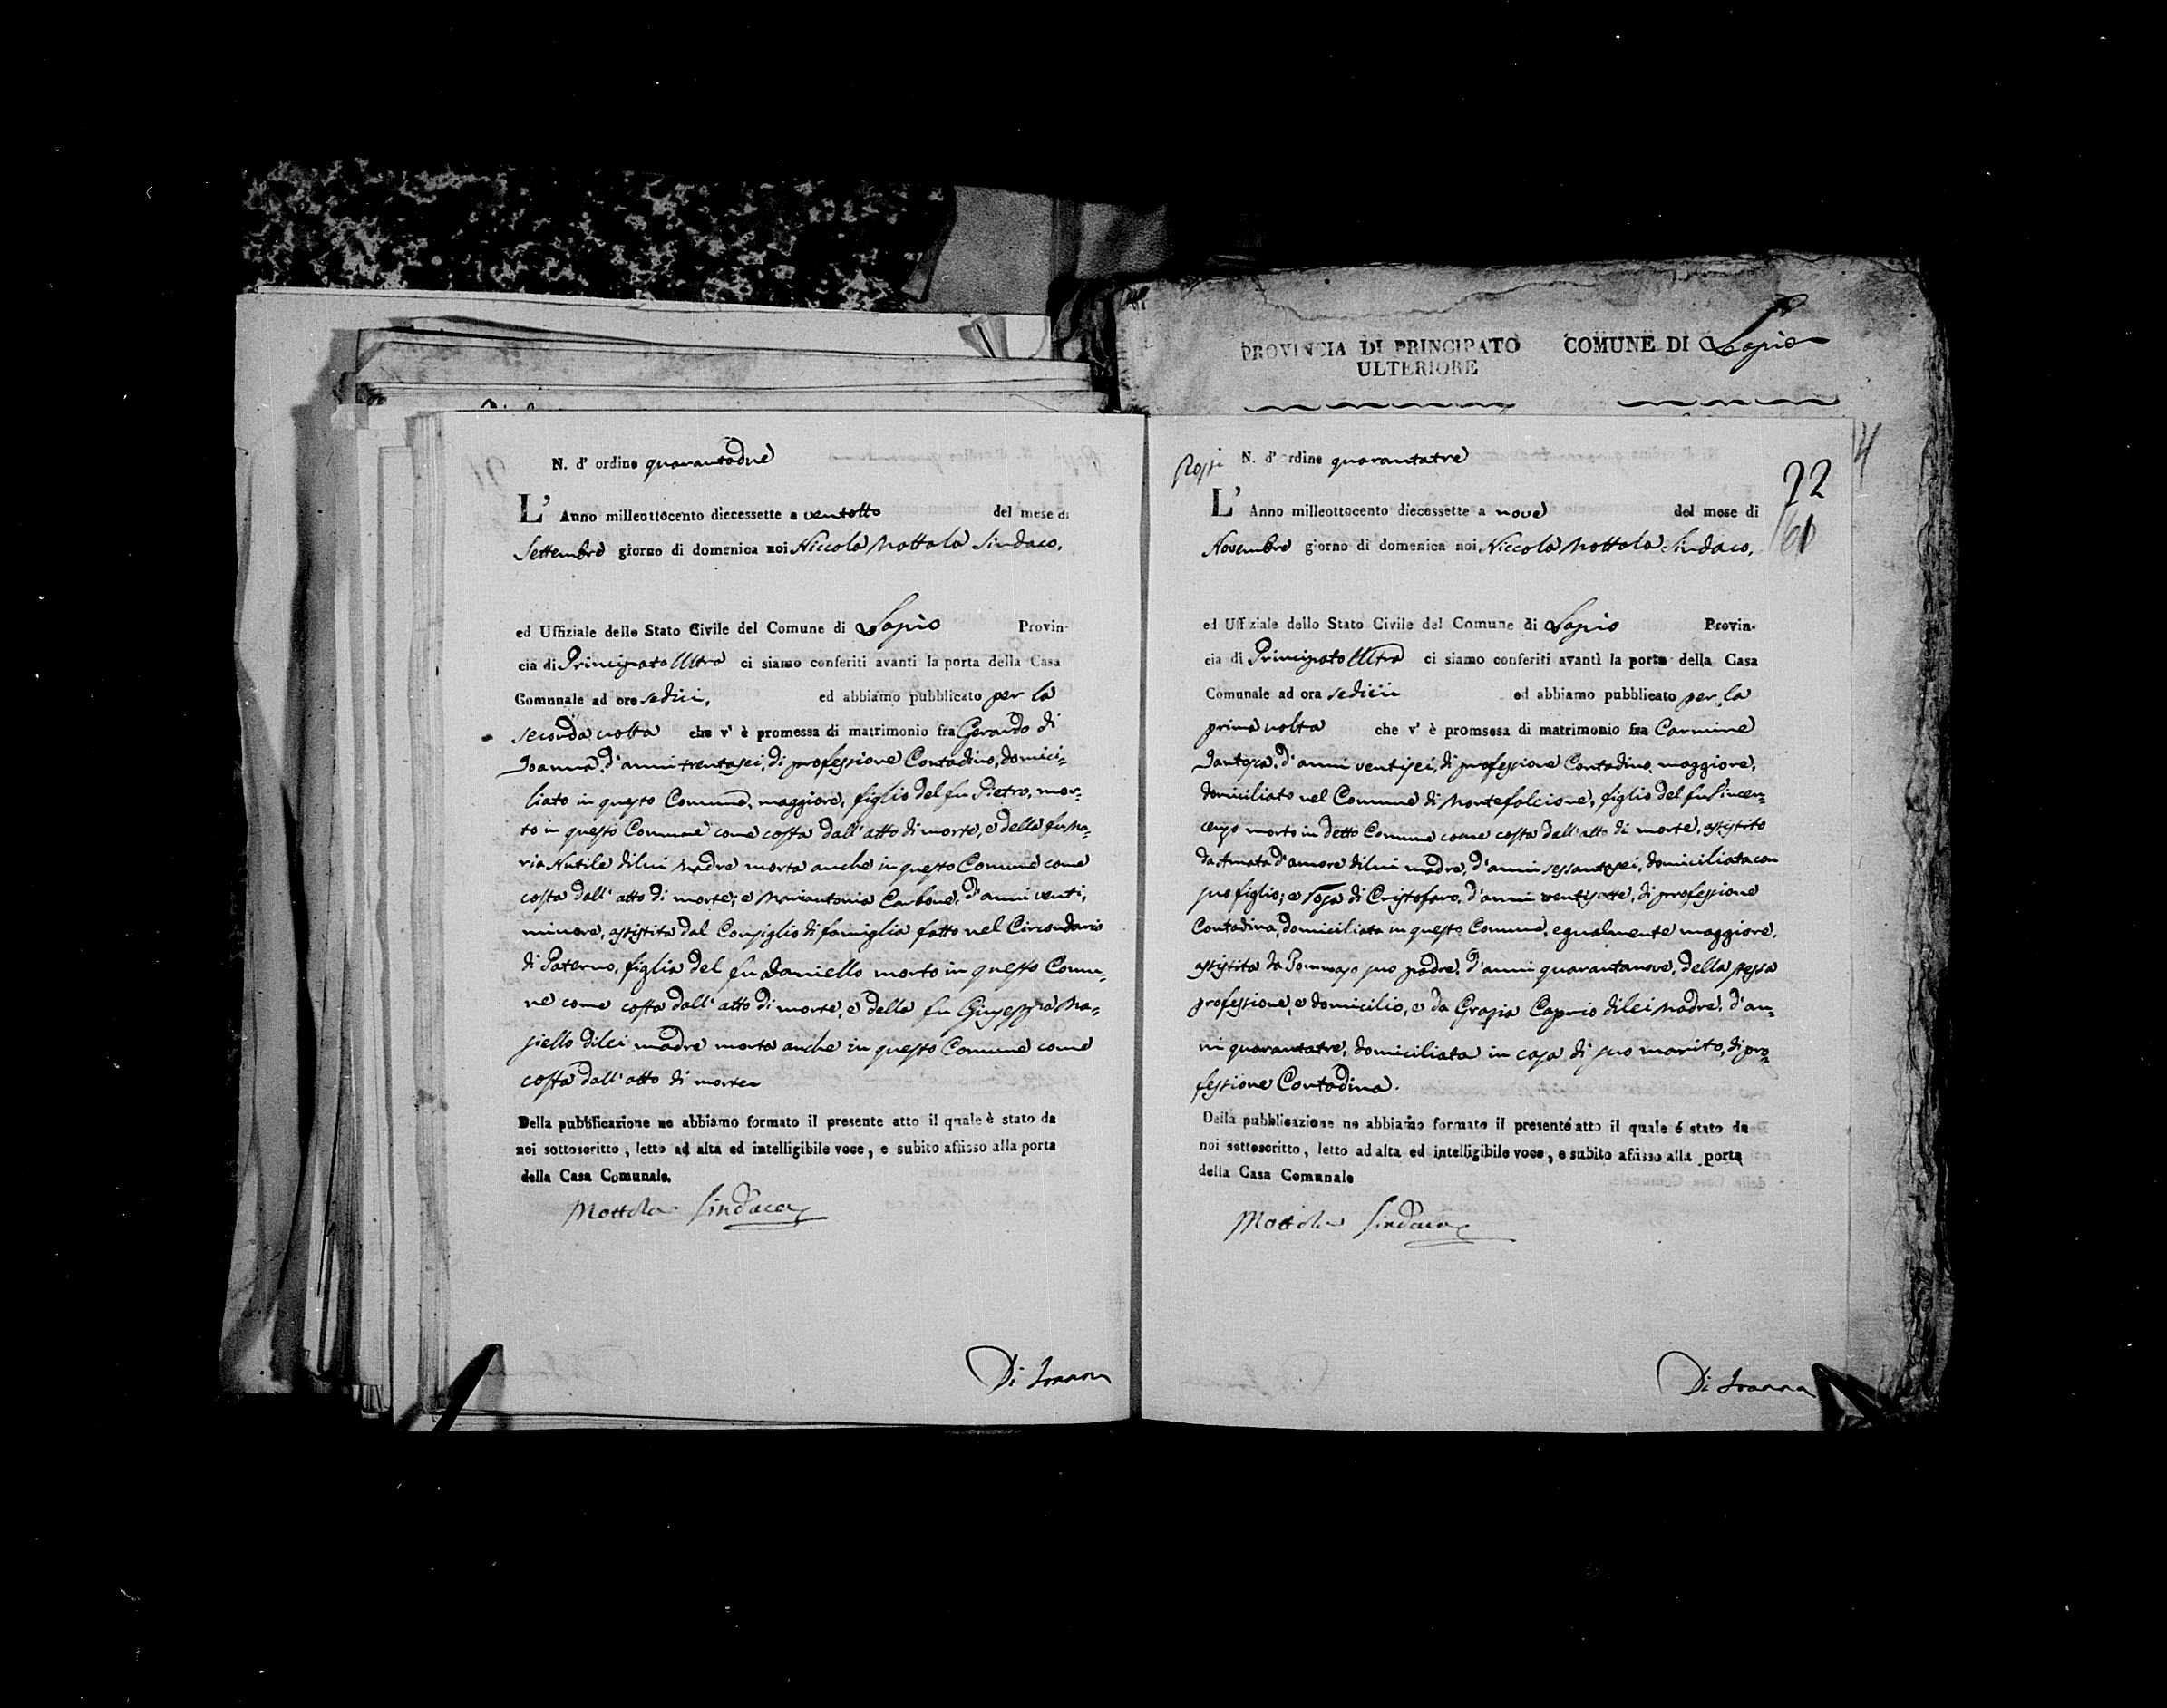 PROVINCIA DI PRINCIPATO
ULTERIORE
COMUNE DI Lapio
N. d' ordine quarantadue
L' Anno milleottocento diecessette a ventotto del mese di
Settembre giorno di domenica noi Niccola Mottola Sindaco,
ed Uffiziale dello Stato Civile del Comune di Lapio Provin-
cia di Principato Ultra ci siamo conferiti avanti la porta della Casa
Comunale ad ore sedici, ed abbiamo pubblicato per la
seconda volta che v' è promessa di matrimonio fra Gerardo di
Joanna, d'anni trentasei, di professione Contadino, domici-
liato in questo Comune, maggiore, figlio del fu Pietro, mor-
to in questo Comune come costa dall' atto di morte, e della fu Ma-
ria Nutile di lui Madre morta anche in questo Comune come
costa dall' atto di morte; e Mariantonia Carbone, d'anni venti,
minore, assistita dal Consiglio di famiglia fatto nel Circondario
di Paterno, figlia del fu Daniello morto in questo Comu-
ne come costa dall' atto di morte, e della fu Giuseppa Ma-
siello di lei madre morta anche in questo Comune come
costa dall' atto di morte
Della pubblicazione ne abbiamo formato il presente atto il quale è stato da
noi sottoscritto, letto ad alta ed intelligibile voce, e subito affisso alla porta
della Casa Comunale.
Mottola Sindaco
Di Joanna
N. d' ordine quarantatre
22
61
L' Anno milleottocento diecessette a nove del mese di
Novembre giorno di domenica noi Niccola Mottola Sindaco,
ed Uffiziale dello Stato Civile del Comune di Lapio Provin-
cia di Principato Ultra ci siamo conferiti avanti la porta della Casa
Comunale ad ora sedici ed abbiamo pubblicato per la
prima volta che v' è promsesa di matrimonio fra Carmine
Santosa, d'anni ventisei, di professione Contadino, maggiore,
domiciliato nel Comune di Montefalcione, figlio del fu Vincen-
cenzo morto in detto Comune come costa dall' atto di morte, assistito
da Amata d'amore di lui madre, d'anni sessantasei, domiciliata con
suo figlio; e Rosa di Cristofaro, d'anni ventisette, di professione
Contadina, domiciliata in questo Comune, egualmente maggiore,
assistita da Tommaso suo padre, d'anni quarantanove, della stessa
professione, e domicilio, e da Grazia Caprio di lei Madre, d'an-
ni quarantatre, domiciliata in casa di suo marito, di pro-
fessione Contadina.
Della pubblicazione ne abbiamo formato il presente atto il quale è stato da
noi sottoscritto, letto ad alta ed intelligibile voce, e subito affisso alla porta
della Casa Comunale
Mottola Sindaco
Di Joanna